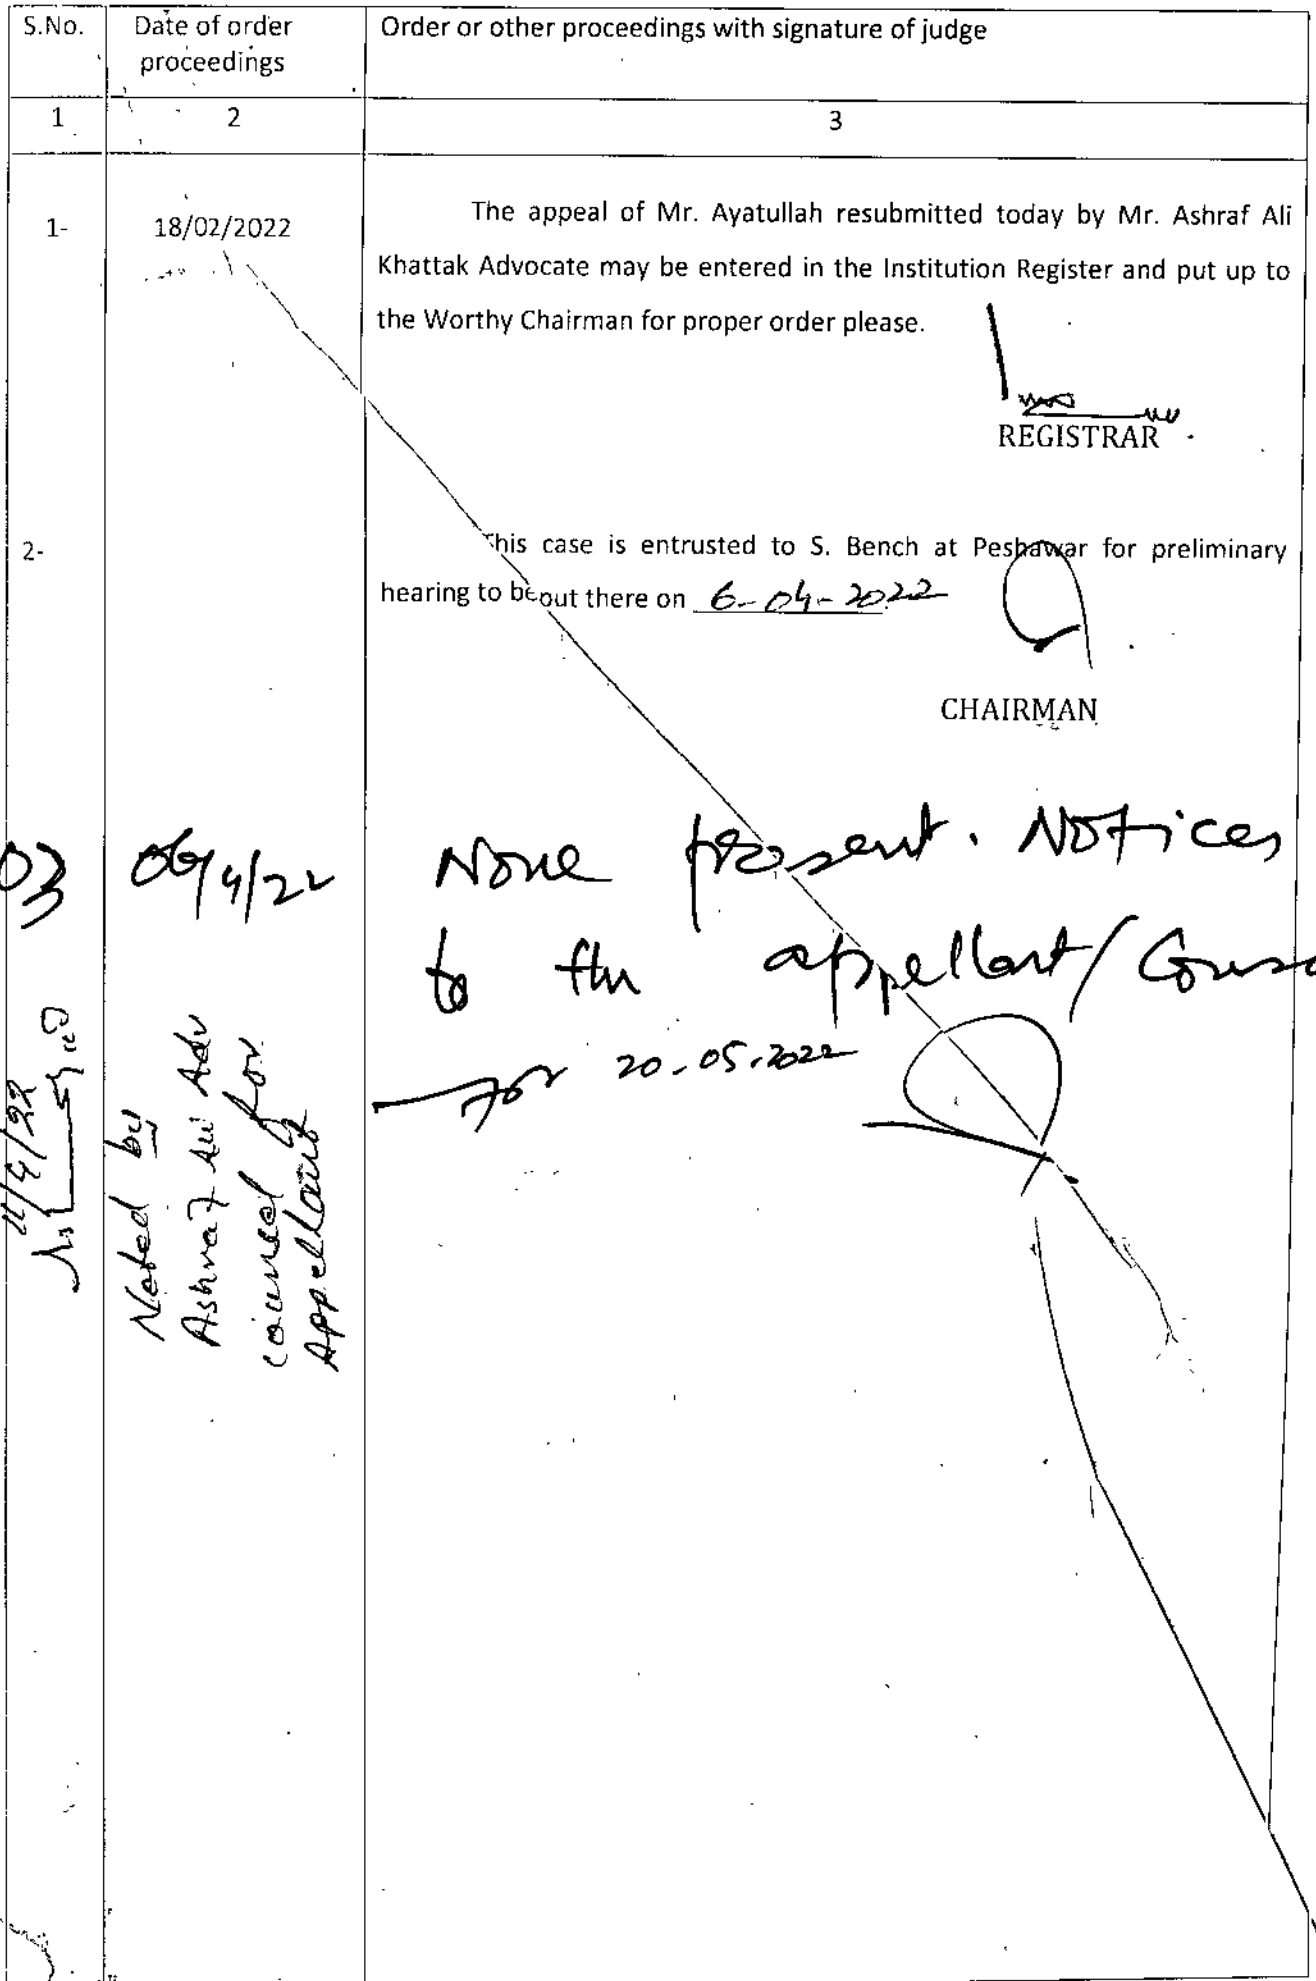 S.No.
Date of order
proceedings
Order or other proceedings with signature of judge
1
2
3
1-
18/02/2022
The appeal of Mr. Ayatullah resubmitted today by Mr. Ashraf Ali
Khattak Advocate may be entered in the Institution Register and put up to
the Worthy Chairman for proper order please.
REGISTRAR
2-
This case is entrusted to S. Bench at Peshawar for preliminary
hearing to be out there on 6-04-2022
CHAIRMAN
03
06/4/22
None present. Notices
to the appellant/
for 20-05-2022
Noted by
Ashraf Ali Adv
counsel for
Appellant